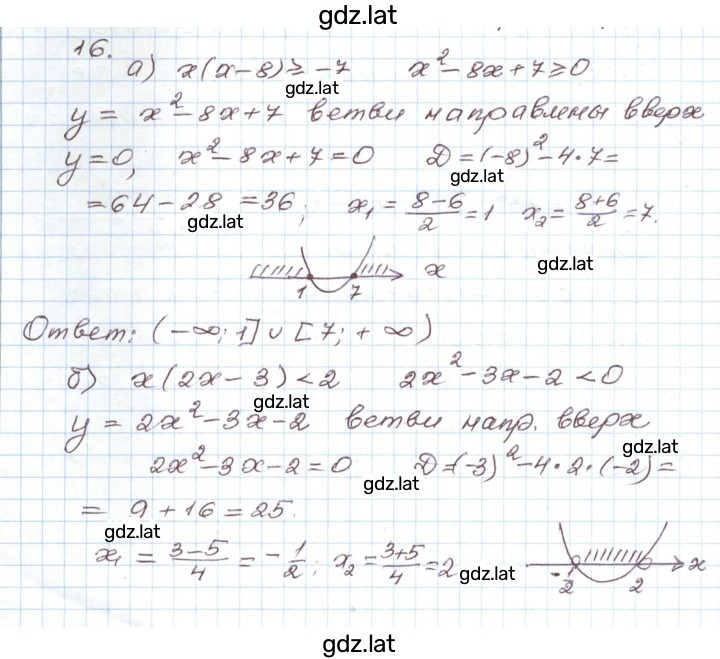 gdz.lat
16.
а) x(x-8)≥-7 x²-8x+7≥0
gdz.lat
y = x²-8x+7 ветви направлены вверх
y=0, x²-8x+7=0 D=(-8)²-4·7=
gdz.lat
=64-28=36; x₁=(8-6)/2=1 x₂=(8+6)/2=7.
gdz.lat
gdz.lat
x
1 7
Ответ: (-∞; 1] ∪ [7; +∞)
б) x(2x-3)<2 2x²-3x-2<0
gdz.lat
y = 2x²-3x-2 ветви напр. вверх
gdz.lat
2x²-3x-2=0 D=(-3)²-4·2·(-2)=
gdz.lat
= 9+16=25.
gdz.lat
x₁ = (3-5)/4 = -1/2; x₂=(3+5)/4=2
gdz.lat
x
-1/2 2
gdz.lat